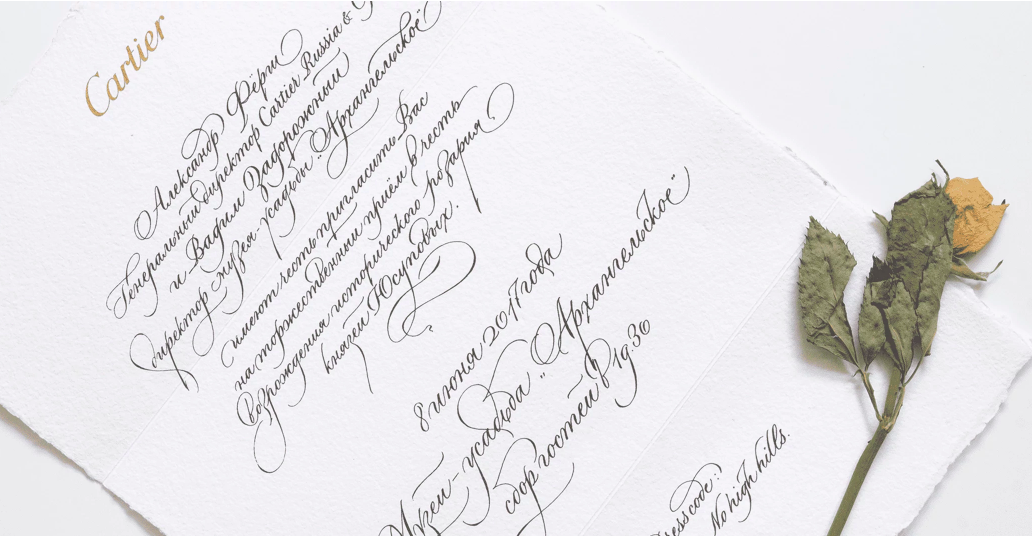 Cartier
Александр Фёрги
Генеральный директор Cartier Russia &
и Вадим Задорожный
директор музея-усадьбы „Архангельское"
имеют честь пригласить Вас
на торжественный приём в честь
возрождения исторического розария
князей Юсуповых.
8 июня 2017 года
Музей-усадьба „Архангельское"
сбор гостей в 19.30
Dresscode:
No high hills.